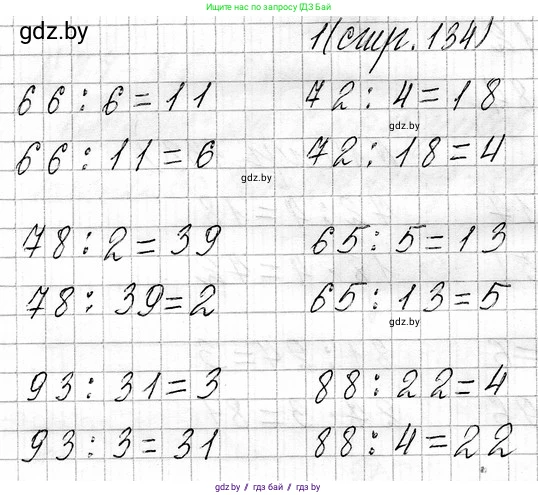 Ищите нас по запросу ГДЗ Бай
gdz.by
1(стр. 134)
66 : 6 = 11
72 : 4 = 18
gdz.by
66 : 11 = 6
72 : 18 = 4
gdz.by
78 : 2 = 39
65 : 5 = 13
78 : 39 = 2
65 : 13 = 5
gdz.by
93 : 31 = 3
88 : 22 = 4
93 : 3 = 31
88 : 4 = 22
gdz.by / гдз бай / gdz.by